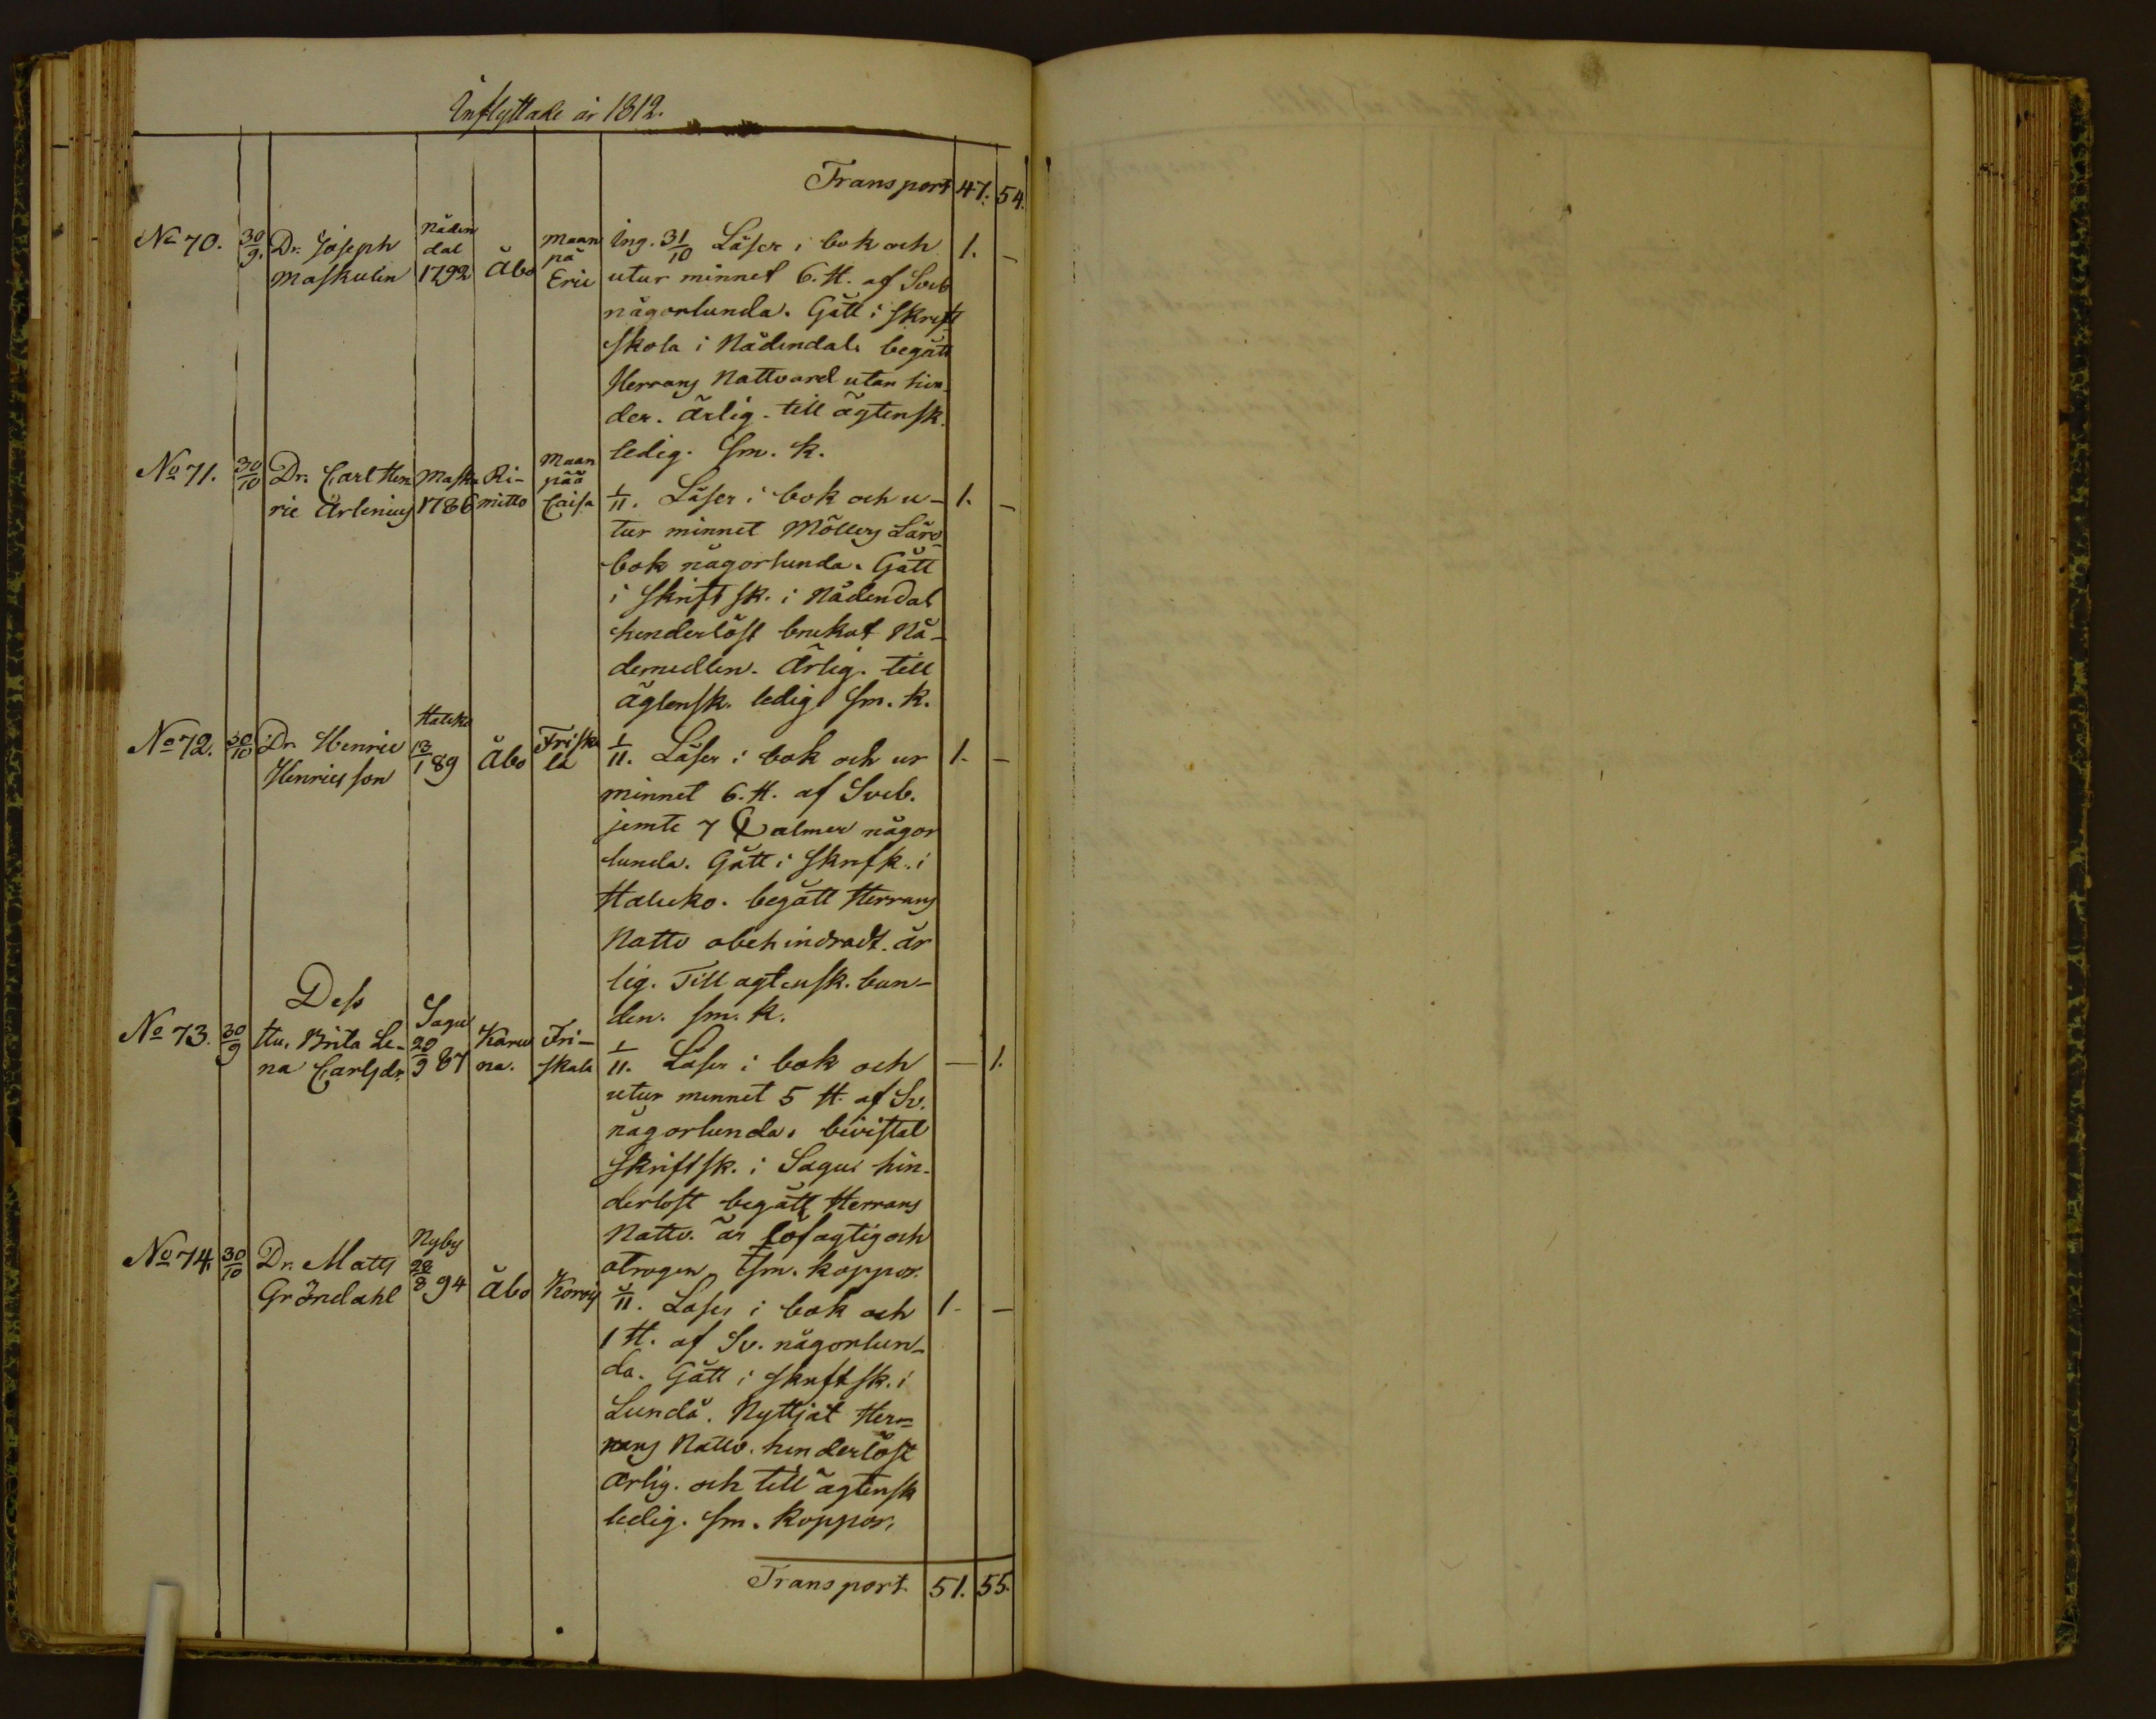 Inflyttade år 1812.
Transport 47. 54.
No 70. 30/9. Dr. Joseph Maskulin
Nåden
dal
1792
Åbo
Maan
pä
Eric
Ing. 31/10 Läser i bok och 1. –
utur minnet 6. H. af Sveb
någorlunda. Gått i skrift
skola i Nådendal. begått
Herrans Nattvard utan hin-
der. ärlig. till ägtensk.
ledig. Sm. k.
No 71. 30/10 Dr. Carl Hen
ric Ärlenius
Masku
1786
Ri-
mitto
Maan
pää
Caisa
1/11. Läser i bok och u- 1. –
tur minnet Möllers Läro-
bok någorlunda. Gått
i Skriftsk. i Nådendal
henderlöst brukat Nå-
demedlen. Ärlig. till
ägtensk. ledig Sm. k.
No 72. 30/10 Dr. Henric
Henricsson
Haliko
13/1 89
Åbo
Friska
la
1/11. Läser i bok och ur 1. –
minnet 6. H. af Sveb.
jemte 7 Psalmer någor
lunda. Gått i Skrifk. i
Haliko. begått Herrans
Nattv obehindradt. är
lig. Till agtensk. bun-
den. Sm. k.
Dess
No 73. 30/9 Hu. Brita Le-
na Carlsdr.
Sagu
20/9 87
Karu
na.
Fri-
skala
1/11. Läser i bok och – 1.
utur minnet 5 H. af Sv.
någorlunda. bivistat
Skriftsk. i Sagu. hin-
derlöst begått Herrans
Nattv. är lofagtig och
otrogen Sm. koppor.
No 74. 30/10 Dr. Matts
Gröndahl
Nyby
28/8 94
Åbo
Korois
1/11. Läser i bok och 1. –
1 H. af Sv. någorlun-
da. Gått i skriftsk. i
Lundå. Nyttjat Her-
rans Nattv. henderlöst
Ärlig. och till ägtensk
ledig. Sm. koppor.
Transport. 51. 55.